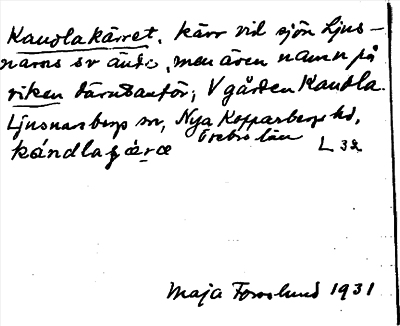 Kandlakärret. kärr vid sjön Ljus-
narns sv ände, men även namn på
viken därutanför, V gården Kandla.
Ljusnarsbergs sn, Nya Kopparbergs hd,
Örebro län
kándlaçæ̀ra L 32
Maja Forsslund 1931